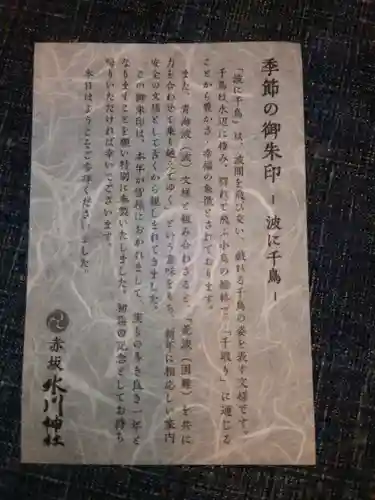 季節の御朱印 － 波に千鳥 －
「波に千鳥」は、波間を飛び交い、戯れる千鳥の姿を表す文様です。
千鳥は水辺に棲み、群れで飛ぶ小鳥の総称で、「千取り」に通じる
ことから豊かさ・幸福の象徴とされております。
また、青海波（波）文様と組み合わさると、「荒波（困難）を共に
力を合わせて乗り越えてゆく」という意味をもち、新年に相応しい家内
安全の文様として古くから親しまれてきました。
この御朱印は、本年が皆様におかれまして、実りの多き良き一年と
なりますことを願い特別に奉製いたしました。初詣の記念としてお持ち
帰りいただければ幸いでございます。
本日はようこそご参拝くださいました。
赤坂 氷川神社